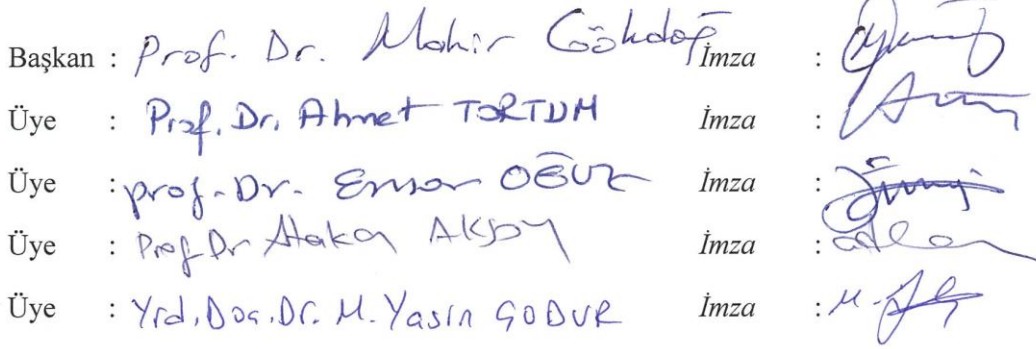 Başkan : Prof. Dr. Mahir Gökdağ İmza :
Üye : Prof. Dr. Ahmet TORTUM İmza :
Üye : prof. Dr. Ensar OĞUZ İmza :
Üye : Prof Dr Atakan AKSOY İmza :
Üye : Yrd. Doç. Dr. M. Yasin ÇODUR İmza :